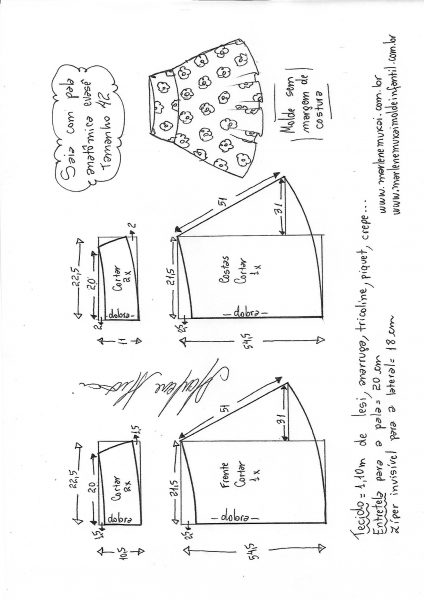 Saia com pala
anatômica evasê
Tamanho 42
Molde sem
margem de
costura
www.marlenemukai.com.br
www.marlenemukaimoldeinfantil.com.br
22,5
20
2
2
Cortar
2x
dobra
11
51
21,5
18
2,5
Costas
Cortar
1x
dobra
54,5
Marlene Mukai
22,5
20
1,5
1,5
Cortar
2x
dobra
10,5
51
21,5
18
2,5
Frente
Cortar
1x
dobra
54,5
Tecido = 1,10m de lesi, anarruga, tricoline, piquet, crepe...
Entretela para a pala = 20 cm
Zíper invisível para a lateral = 18 cm